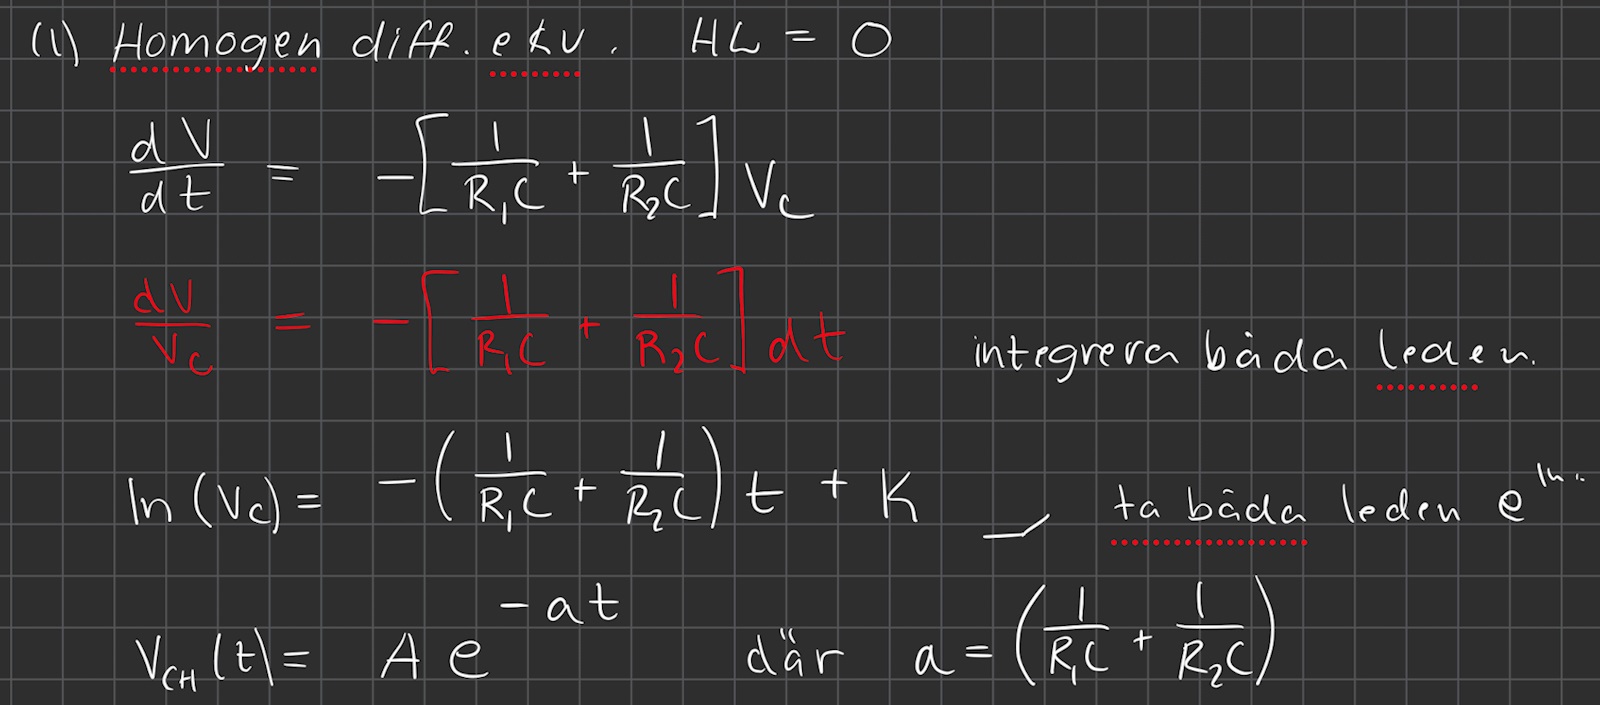 (1) Homogen diff. ekv. HL = 0
dV/dt = -[1/R₁C + 1/R₂C] V_C
dV/V_C = -[1/R₁C + 1/R₂C] dt integrera båda leden.
ln (V_C) = -(1/R₁C + 1/R₂C) t + K ta båda leden e^ln..
V_CH (t) = A e^-at där a = (1/R₁C + 1/R₂C)